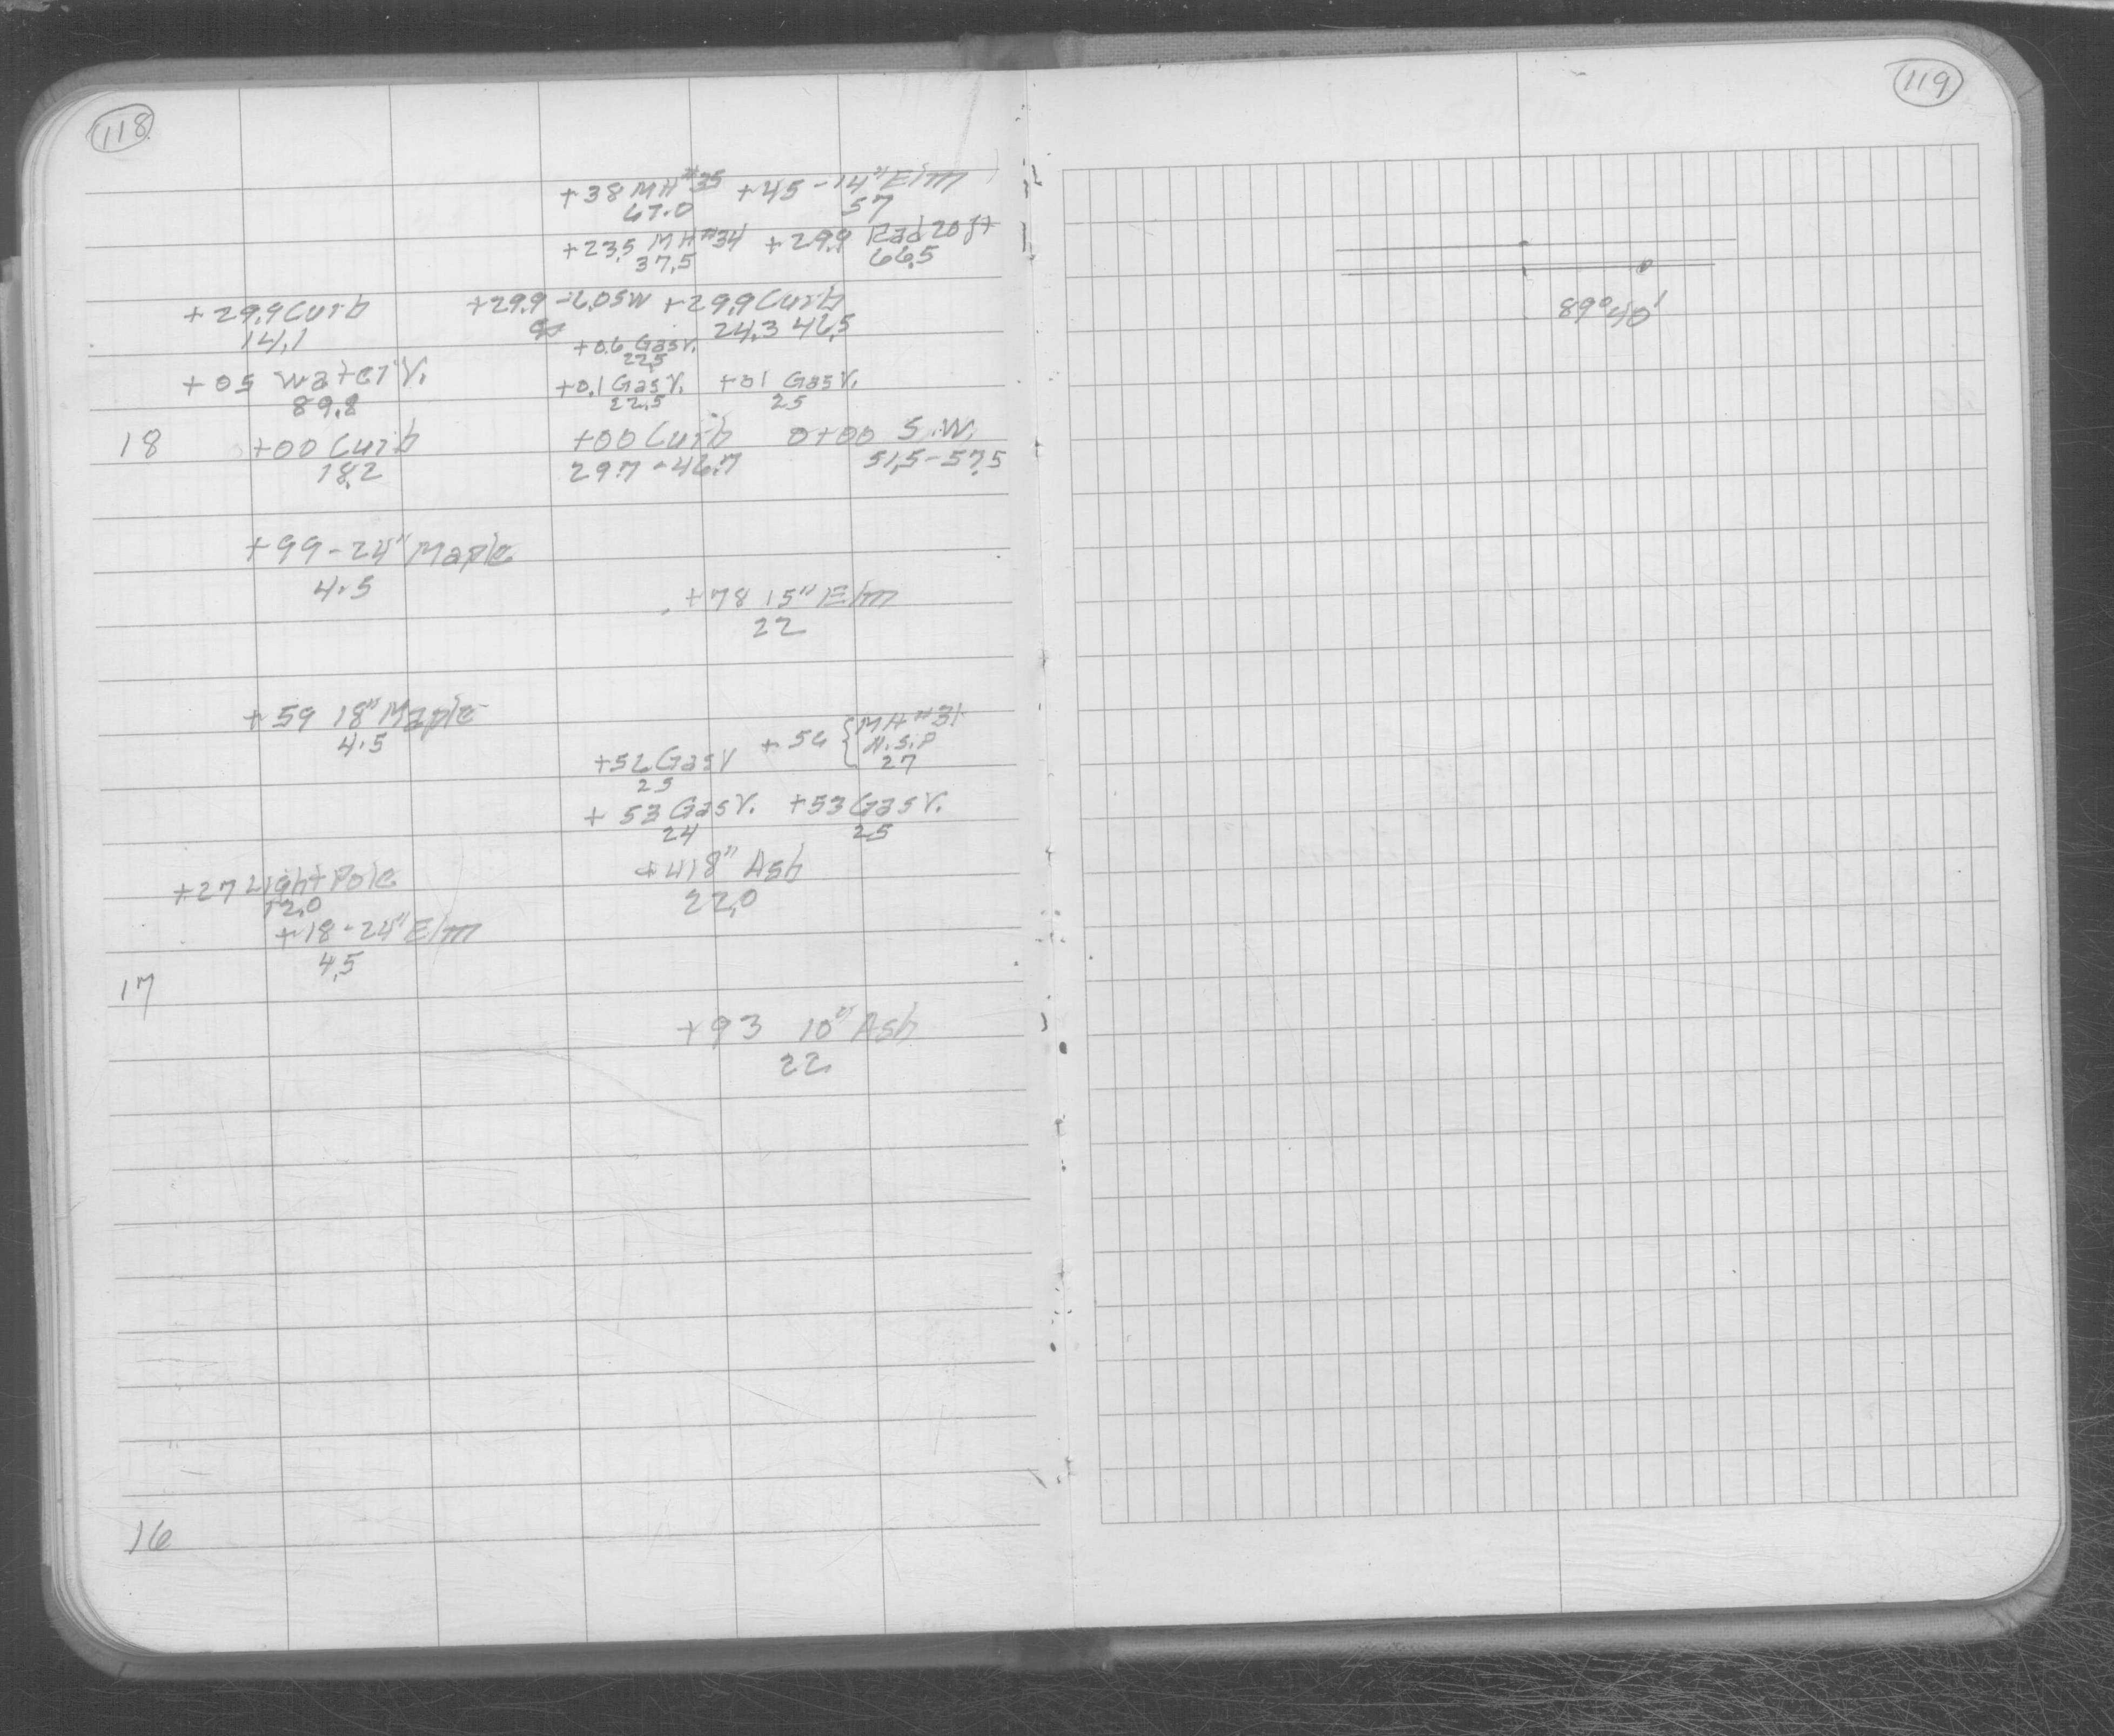 118
119
+38 MH #35 +45-14" Elm
67.0 57
+23.5 MH #34 +29.9 Rad 20 ft
37.5 66.5
89°40'
+29.9 Curb +29.9 -6.0 SW +29.9 Curb
14.1 24.3 46.5
+0.6 Gas V.
22.5
+05 Water V. +0.1 Gas V. +01 Gas V.
89.8 22.5 25
18 +00 Curb +00 Curb 0+00 S.W.
18.2 29.7-46.7 51.5-57.5
+99-24" Maple
4.5
+78 15" Elm
22
+59 18" Maple
4.5
+56 { MH #31
N.S.P
27
+52 Gas V
25
+53 Gas V. +53 Gas V.
24 25
+27 Light Pole +41 8" Ash
12.0 22.0
+18-24" Elm
4.5
17
+93 10" Ash
22
16